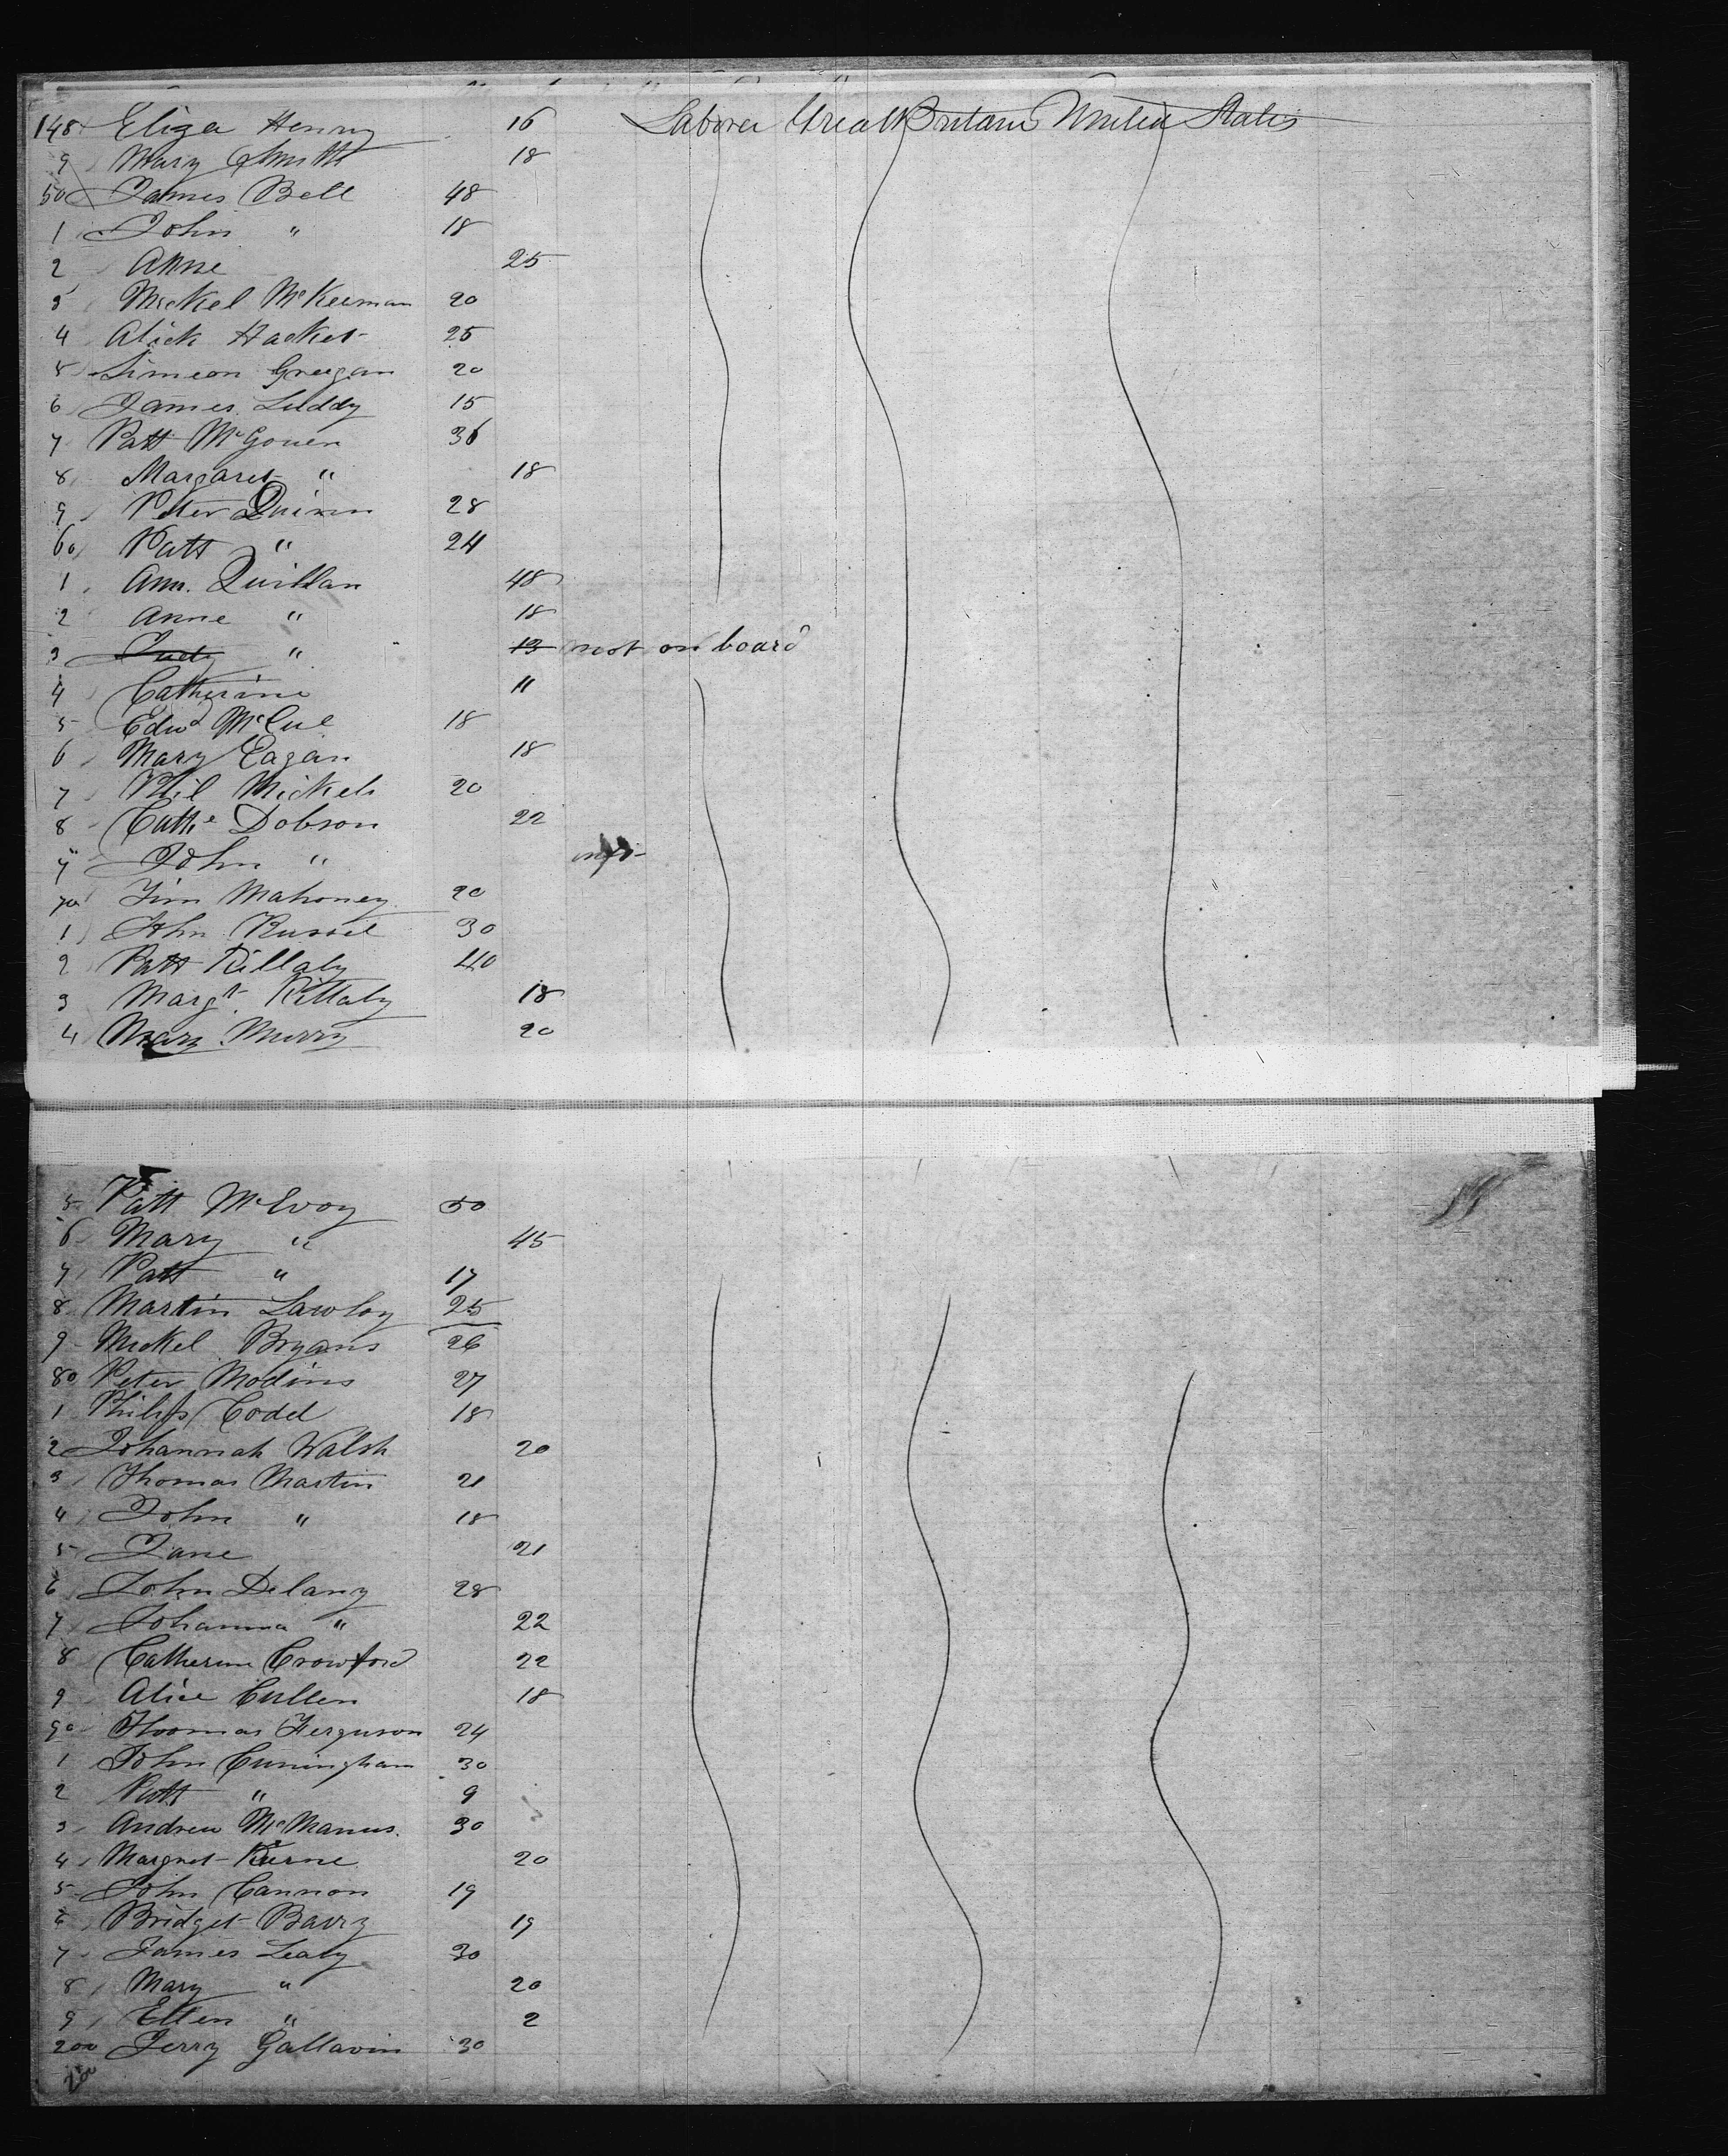 148 Eliza Henry 16 Laborer Great Britain United States
9 Mary Smith 18
50 James Bell 48
1 John " 18
2 Anne 25
3 Mickel McKeernan 20
4 Alick Hacket 25
5 Simeon Greegan 20
6 James Liddy 15
7 Patt McGouen 36
8 Margaret " 18
9 Peter Quinn 28
60 Patt " 24
1 Ann Quillan 48
2 Anne " 18
3 Judy " 13 not on board
4 Catherine 11
5 Edwd McCue 18
6 Mary Eagan 18
7 Phil Mickels 20
8 Cathe Dobson 22
9 John " inft
70 Tim Mahoney 20
1 John Russil 30
2 Patt Killaly 40
3 Margt Killaly 18
4 Mary Murry 20
5 Patt McEvoy 50
6 Mary " 45
7 Patt " 17
8 Martin Lawloy 25
9 Mickel Bryans 26
80 Peter Modins 27
1 Philip Codd 18
2 Johannah Walsh 20
3 Thomas Martin 21
4 John " 18
5 Jane 21
6 John Delany 28
7 Johanna " 22
8 Catherine Crowford 22
9 Alice Cullen 18
90 Thoomas Ferguson 24
1 John Cuningham 30
2 Patt " 9
3 Andrew McManus 30
4 Margret Kierne 20
5 John Cannon 19
6 Bridget Barry 19
7 James Leahy 30
8 Mary " 20
9 Ellen " 2
200 Jerry Gallavin 30